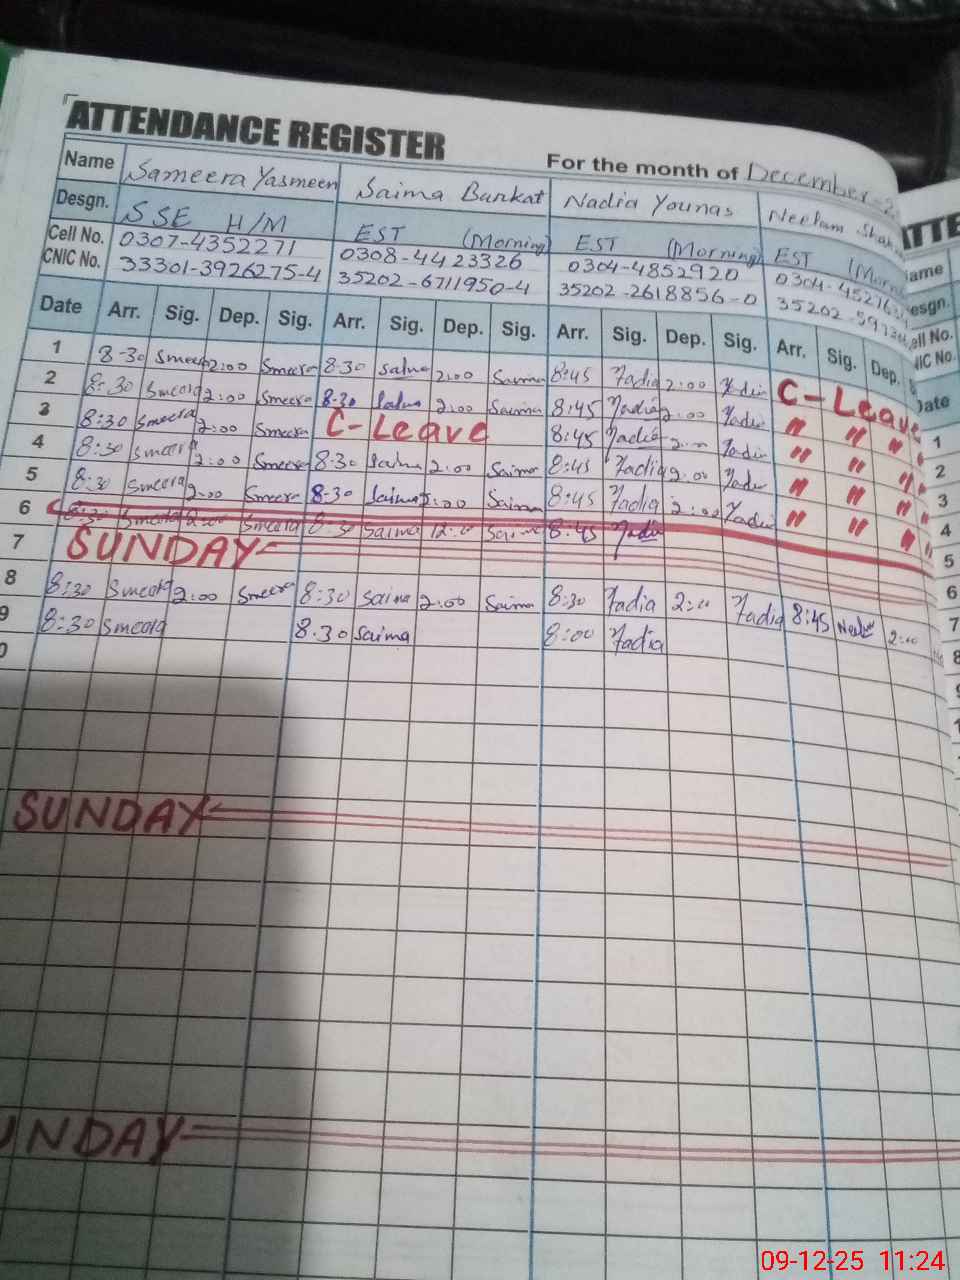 ATTENDANCE REGISTER
For the month of December-2
Name Sameera Yasmeen Saima Barkat Nadia Younas Neelam
Desgn. SSE H/M EST (Morning) EST (Morning) EST (Morning
Cell No. 0307-4352271 0308-4423326 0304-4852920
CNIC No. 33301-3926275-4 35202-6711950-4 35202-2618856-0
Date Arr. Sig. Dep. Sig. Arr. Sig. Dep. Sig. Arr. Sig. Dep. Sig. Arr. Sig. Dep.
1 8-30 Smeera 2:00 Smeera 8:30 Saima 2:00 Saima 8:45 Nadia 2:00 Nadia C-Leave
2 8:30 Smeera 2:00 Smeera 8:30 Saima 2:00 Saima 8:45 Nadia 2:00 Nadia " " "
3 8:30 Smeera 2:00 Smeera C-Leave 8:45 Nadia 2:00 Nadia " " "
4 8:30 Smeera 2:00 Smeera 8:30 Saima 2:00 Saima 8:45 Nadia 2:00 Nadia " " "
5 8:30 Smeera 2:00 Smeera 8:30 Saima 2:00 Saima 8:45 Nadia 2:00 Nadia " " "
6 8:30 Smeera 2:00 Smeera 8:30 Saima 12:0 Saima 8:45 Nadia
7 SUNDAY
8 8:30 Smeera 2:00 Smeera 8:30 Saima 2:00 Saima 8:30 Nadia 2:00 Nadia 8:45 2:00
9 8:30 Smeera 8.30 Saima 8:00 Nadia
0
SUNDAY
UNDAY
ATTE
ame
esgn.
ell No.
NIC No.
Date
1
2
3
4
5
6
7
8
9
09-12-25 11:24